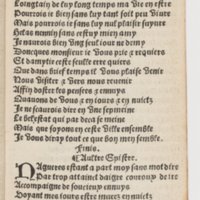 Loingtain de luy long temps ma vie en estre
Pourrois ie bien sans luy tant soit peu viure
Mais pourrois ie sans luy nul plaisir suyure
Helas nenny sans cest mon doulx amy
Je naurois bien ung seul iour ne demy
Doncques monsieur ie vous prie & requiers
Et damytie ceste seulle erre quiers
Que dans brief temps il vous plaise venir
Nous visiter & vers nous retourner
Affin doster les pensees & ennuys
Quauons de vous & en iours & en nuictz
Je ne scaurois dire en une sepmaine
Le bel estat qui par deca se meine
Mais que soyons en ceste ville ensemble
Je vous diray tout ce que bon men semble.
Finis.
Laultre Epistre.
Nagueres estant a part moy sans mot dire
Par trop attainct daigre couroux & dire
Accompaigne de soucieux ennuys
Voyant mes iours estre muez en nuictz